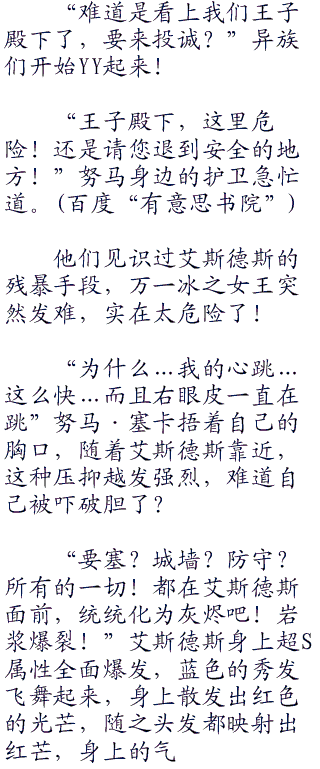 “难道是看上我们王子
殿下了，要来投诚？”异族
们开始YY起来！
“王子殿下，这里危
险！还是请您退到安全的地
方！”努马身边的护卫急忙
道。(百度“有意思书院”)
他们见识过艾斯德斯的
残暴手段，万一冰之女王突
然发难，实在太危险了！
“为什么…我的心跳…
这么快…而且右眼皮一直在
跳”努马·塞卡捂着自己的
胸口，随着艾斯德斯靠近，
这种压抑越发强烈，难道自
己被吓破胆了？
“要塞？城墙？防守？
所有的一切！都在艾斯德斯
面前，统统化为灰烬吧！岩
浆爆裂！”艾斯德斯身上超S
属性全面爆发，蓝色的秀发
飞舞起来，身上散发出红色
的光芒，随之头发都映射出
红芒，身上的气